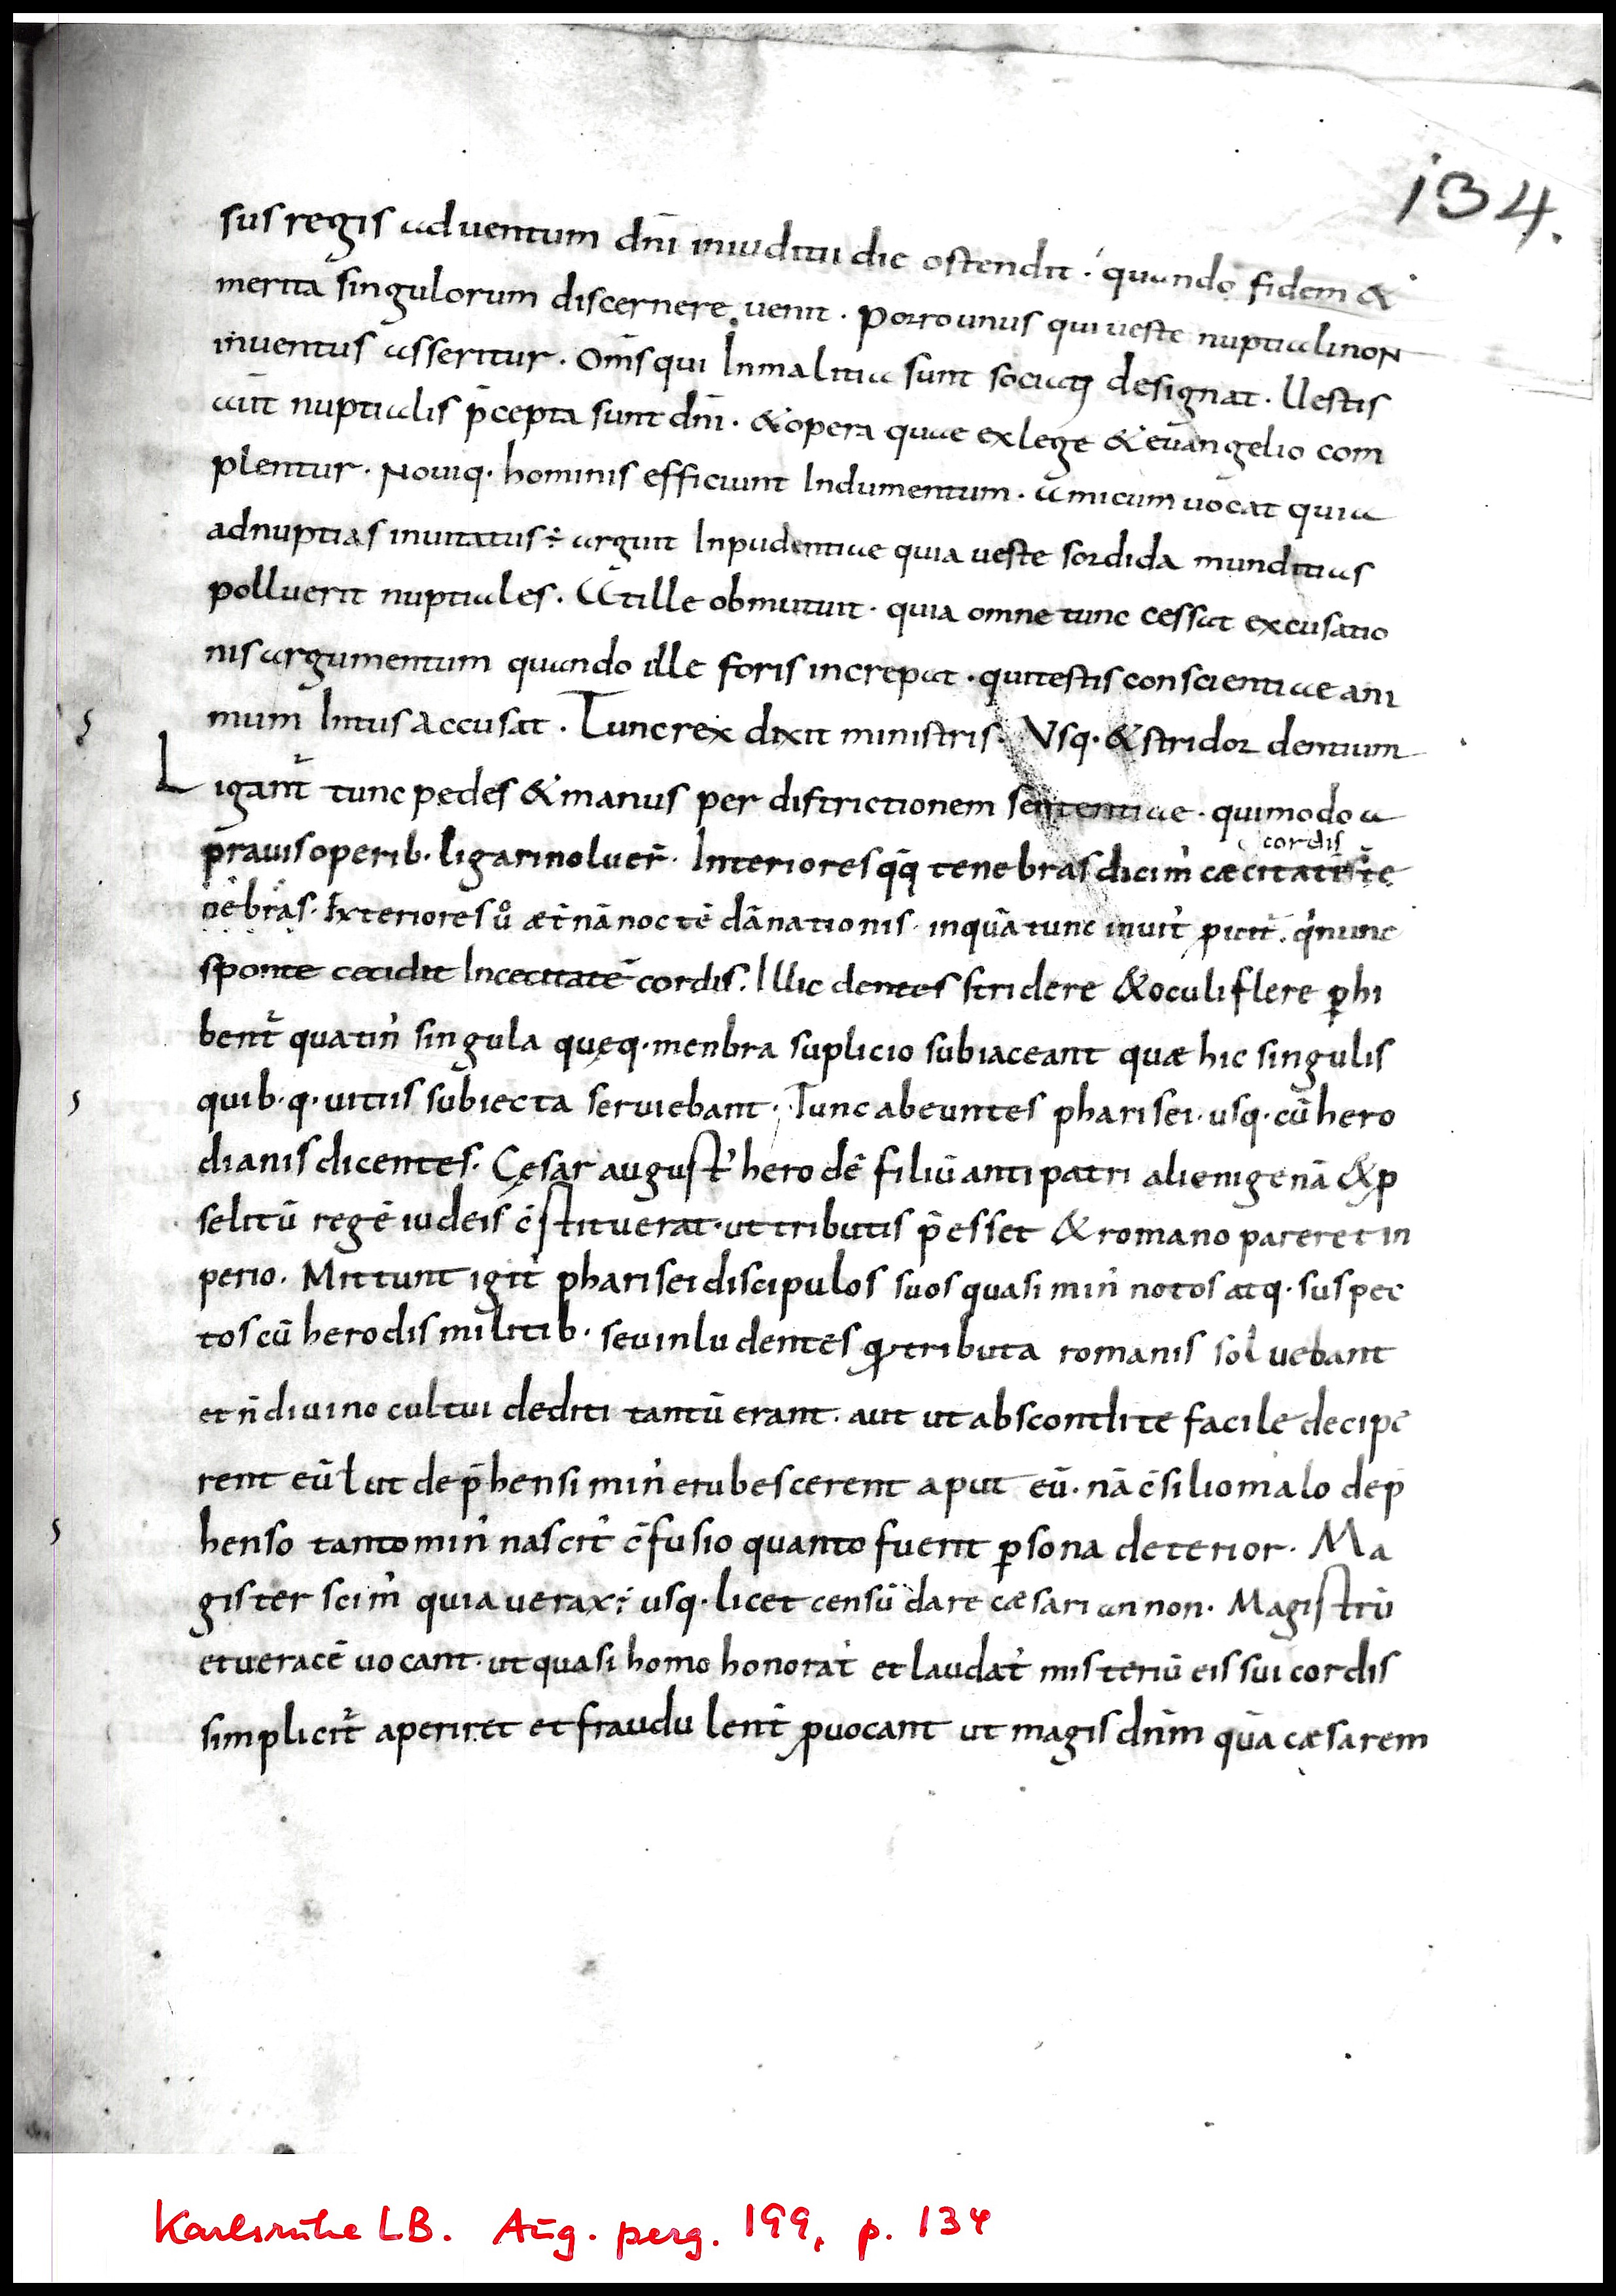 134.
sus regis aduentum dnī iniuditii die ostendit · quando fidem &
merita singulorum discernere uenit · Porro unus qui ueste nuptiali non
inuentus asseritur · Om̄s qui In malitia sunt sociati designat · Uestis
aūt nuptialis p̄cepta sunt dnī · & opera quae ex lege & euangelio com
plentur · Nouiq· hominis efficiunt Indumentum · amicum uocat quia
ad nuptias inuitatus ÷ arguit Inpudentiae quia ueste sordida munditias
polluerit nuptiales · At ille obmutuit · quia omne tunc cessat excusatio
nis argumentum quando ille foris increpat · qui testis conscientiae ani
mum Intus accusat · Tunc rex dixit ministris · Vsq· & stridor dentium
Ligant̄ tunc pedes & manus per districtionem sententiae · qui modo a
prauis operib· ligari noluer̄ · Interiores qq̄ tenebras dicim̓ cæcitatē te
cordis
nebras · Exteriores ů æt̓nā noctē dānationis · in quā tunc inuit̓ · q̓ nunc
sponte cecidit In cecitatē cordis · Illic dentes stridere & oculi flere ꝑhi
bent̄ quatin̓ singula quęq· menbra suplicio subiaceant quæ hic singulis
quib·q· uitiis subiecta seruiebant · Tunc abeuntes pharisei · usq· cū hero
dianis dicentes · Cęsar august̓ herodē filiū antipatri alienigenā & ꝓ
selitū regē iudeis c̄stituerat · ut tributis p̄esset & romano pareret in
perio · Mittunt igit̓ pharisei discipulos suos quasi min̓ notos atq· suspec
tos cū herodis militib· seu inludentes q tributa romanis soluebant
et n̄ diuino cultui dediti tantū erant · aut ut abscondite facile decipe
rent eū ł ut dep̄hensi min̓ erubescerent aput eū · nā c̄silio malo dep̄
henso tanto min̓ nascit̓ c̄fusio quanto fuerit ꝑsona deterior · Ma
gister scim̓ quia uerax ÷ usq· licet censū dare cæsari an non · Magistrū
et ueracē uocant · ut quasi homo honorat̓ et laudat̓ misteriū eis sui cordis
simplicit̄ aperiret et fraudulent̓ ꝓuocant ut magis dn̄m quā cæsarem
Karlsruhe LB. Aug. perg. 199, p. 134